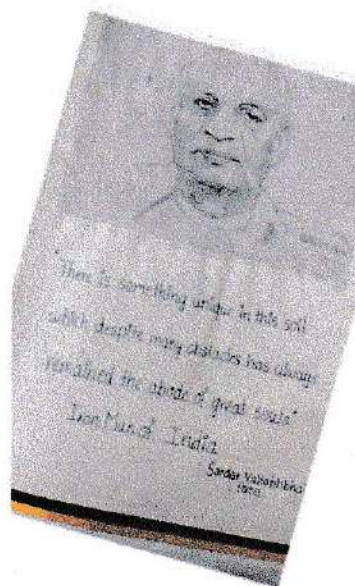 "There is something unique in this soil
which despite many obstacles has always
remained the abode of great souls"
Iron Man of India
Sardar Vallabhbhai